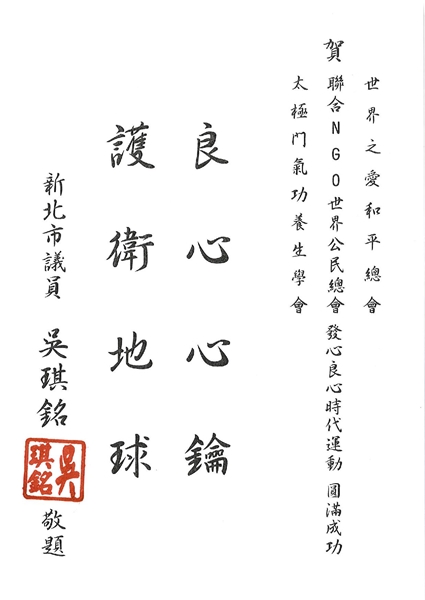 世界之愛和平總會
賀 聯合NGO世界公民總會 發心良心時代運動 圓滿成功
太極門氣功養生學會
良心心鑰
護衛地球
新北市議員 吳琪銘 敬題
吳琪銘